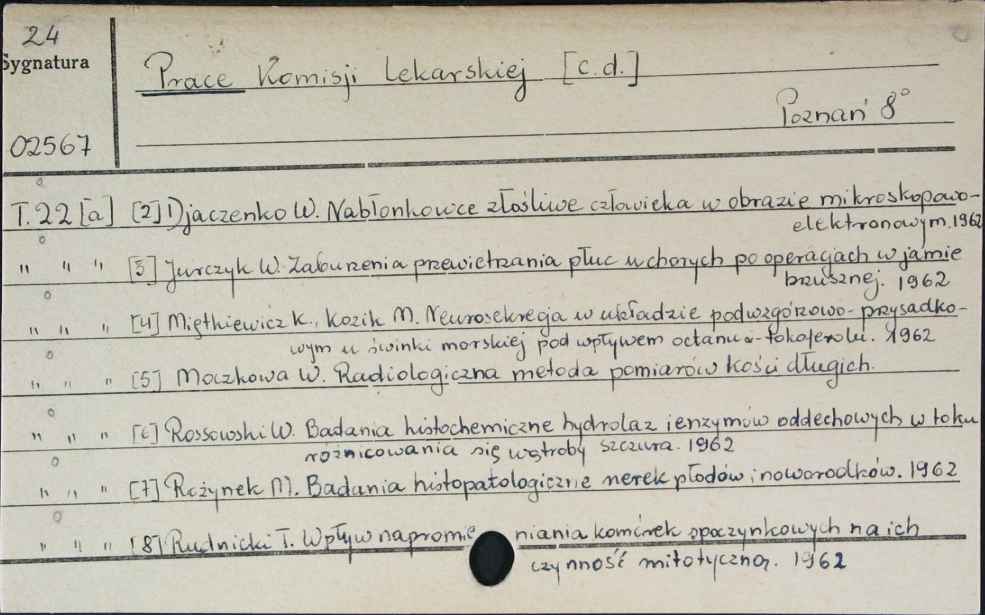 24
Sygnatura
Prace Komisji Lekarskiej [c.d.]
Poznań 8°
02567
T.22 [a] [2] Djaczenko W. Nabłonkowce złośliwe człowieka w obrazie mikroskopowo-
elektronowym. 1962
" " " [3] Jurczyk W. Zaburzenia przewietrzania płuc u chorych po operacjach w jamie
brzusznej. 1962
" " " [4] Miętkiewicz K., Kozik M. Neurosekrecja w układzie podwzgórzowo-przysadko-
wym u świnki morskiej pod wpływem octanu α-tokoferolu. 1962
" " " [5] Moczkowa W. Radiologiczna metoda pomiarów kości długich.
" " " [6] Rossowski W. Badania histochemiczne hydrolaz i enzymów oddechowych w toku
rożnicowania się wątroby szczura. 1962
" " " [7] Rożynek M. Badania histopatologiczne nerek płodów i noworodków. 1962
" " " [8] Rudnicki T. Wpływ napromieniania komórek spoczynkowych na ich
czynność mitotyczną. 1962